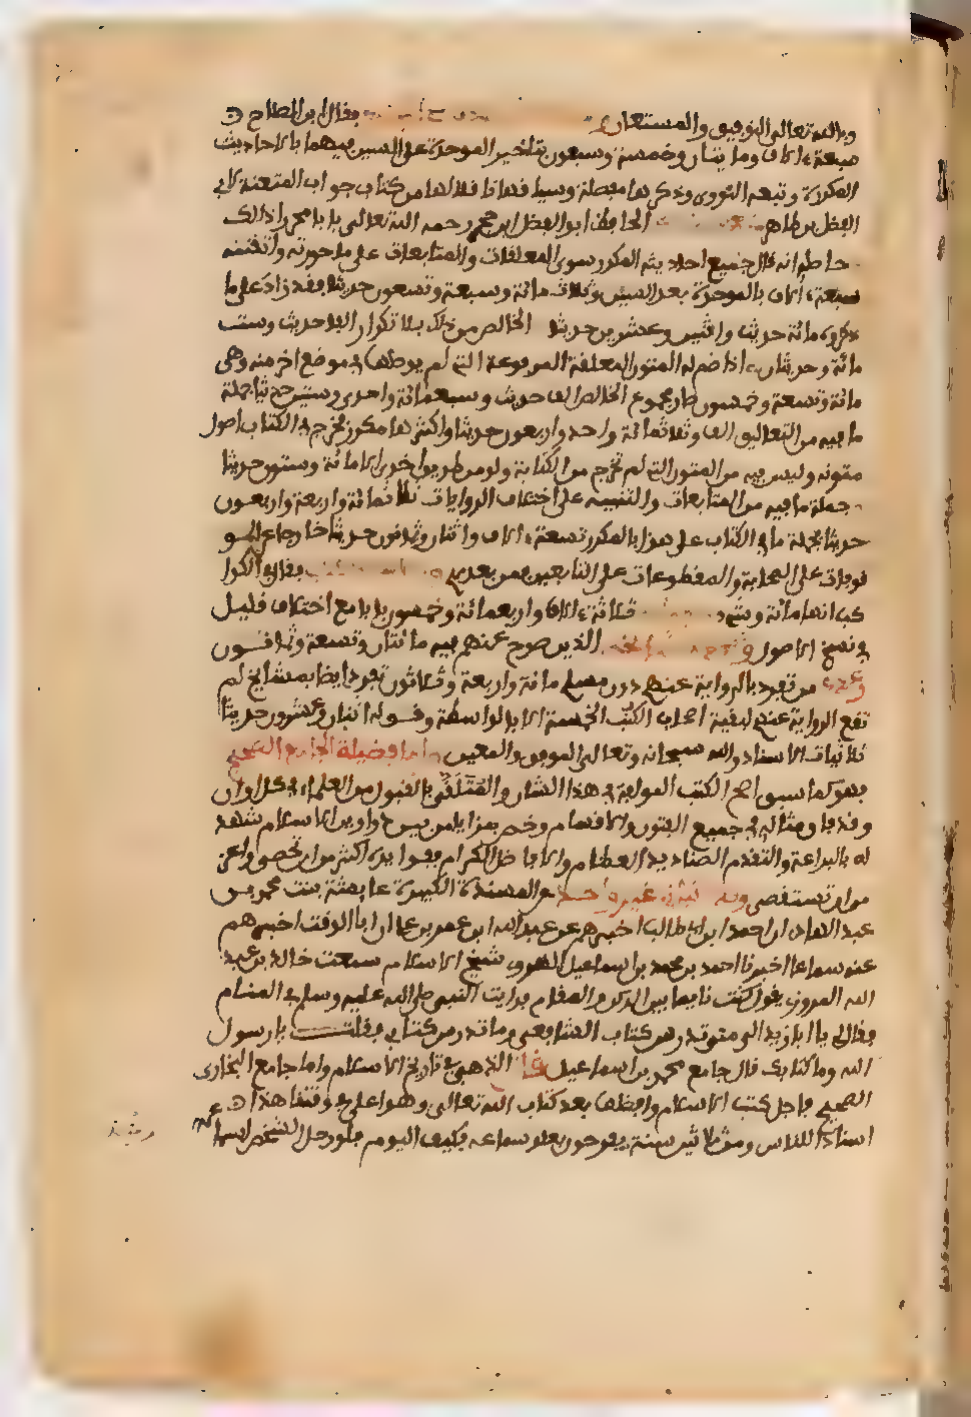 وبالله تعالى التوفيق والمستعان فقال ابن الصلاح
سبعة ءالاف ومايتان وخمسة وسبعون بتاخير الموحدة عن السين فيهما بالاحاديث
المكررة وتبعه النووي وذكرها مفصلة وسياقها ناقلا لها من كتاب جواب المتعنة لابي
الفضل بن طاهر الحافظ ابو الفضل ابن حجر رحمه الله تعالى بابا بابا محررا ذلك
حاصله انه قال جميع احاديثه بالمكرر سوى المعلقات والمتابعات على ما حررته واتقنته
سبعة ءالاف بالموحدة بعد السين وثلاث مائة وسبعة وتسعون حديثا فقد زاد على ما
ذكروه مائة حديث واثنين وعشرين حديثا الخالص من ذلك بلا تكرار الفا حديث وست
مائة وحديثان واذا ضم له المتون المعلقة المرفوعة التي لم يوصلها في موضع اخر منه وهي
مائة وتسعة وخمسون صار مجموع الخالص الف حديث وسبعمائة واحدى وستين حديثا جملة
ما فيه من التعاليق الف وثلاثمائة واحد واربعون حديثا واكثرها مكرر مخرج في الكتاب اصول
متونه وليس فيه من المتون التي لم تخرج من الكتاب ولو من طريق اخرى الا مائة وستون حديثا
جملة ما فيه من المتابعات والتنبيه على اختلاف الروايات ثلاثمائة واربعة واربعون
حديثا فجملة ما في الكتاب على هذا بالمكرر تسعة ءالاف واثنان وثمانون حديثا خارجا عن المو
قوفات على الصحابة والمقطوعات على التابعين فمن بعدهم فقال في الكوا
كب انها مائة وشيء ثلاثة ءالاف واربعمائة وخمسون بابا مع اختلاف قليل
في نسخ الاصول الذين صرح عنهم فيه مائتان وتسعة وثمانون
وعدد من تفرد بالرواية عنهم دون مسلم مائة واربعة وثلاثون تفرد ايضا بمشايخ لم
تقع الرواية عنهم لبقية اصحاب الكتب الخمسة الا بالواسطة وقع له اثنان وعشرون حديثا
ثلاثيات الاسناد والله سبحانه وتعالى الموفق والمعين واما فضيلة الجامع الصحيح
فهو كما سبق اصح الكتب المولفة في هذا الشان والمتلقى بالقبول من العلماء في كل اوان
وقد فاق مثاله في جميع الفنون والاقسام وخص بمزايا من بين دواوين الاسلام شهد
له بالبراعة والتقدم الصناديد العظام والافاضل الكرام ففوايده اكثر من ان تحصى واعز
من ان تستقصى وقد غير واحد عن المسندة الكبيرة عايشة بنت محمد بن
عبد الهادي ان احمد ابن ابي طالب اخبرهم عن عبد الله ابن عمر بن علي ان ابا الوقت اخبرهم
عنه سماعا اخبرنا احمد بن محمد بن اسماعيل الهروي شيخ الاسلام سمعت خالد بن عبد
الله المروزي يقول كنت نايما بين الركن والمقام فرايت النبي صلى الله عليه وسلم في المنام
فقال لي يا ابا زيد الى متى تدرس كتاب الشافعي وما تدرس كتابي فقلت يا رسول
الله وما كتابك قال جامع محمد بن اسماعيل وقال الذهبي في تاريخ الاسلام واما جامع البخاري
الصحيح فاجل كتب الاسلام وافضلها بعد كتاب الله تعالى وهو اعلى في وقتنا هذا
اسنادا للناس ومن ثلاثين سنة يفرحون بعلو سماعه فكيف اليوم فلو رحل الشخص لسماعه